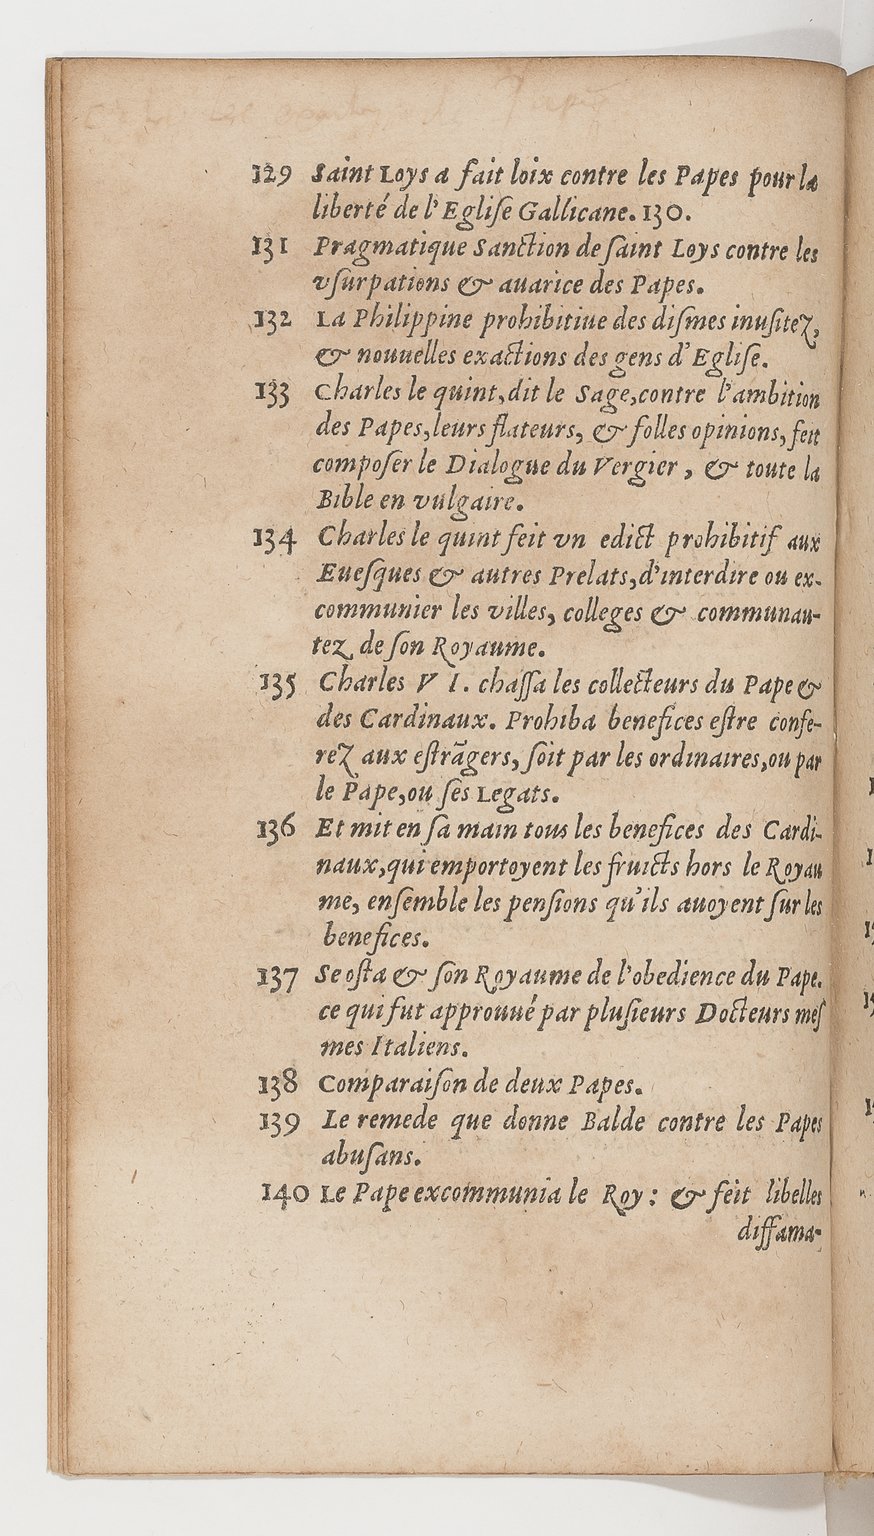 129 Saint Loys a fait loix contre les Papes pour la
liberté de l'Egliſe Gallicane. 130.
131 Pragmatique Sanction de ſaint Loys contre les
vſurpations & auarice des Papes.
132 La Philippine prohibitiue des diſmes inuſitez,
& nouuelles exactions des gens d'Egliſe.
133 Charles le quint, dit le Sage, contre l'ambition
des Papes, leurs flateurs, & folles opinions, feit
compoſer le Dialogue du Vergier, & toute la
Bible en vulgaire.
134 Charles le quint feit vn edict prohibitif aux
Eueſques & autres Prelats, d'interdire ou ex-
communier les villes, colleges & communau-
tez de ſon Royaume.
135 Charles V I. chaſſa les collecteurs du Pape &
des Cardinaux. Prohiba benefices eſtre confe-
rez aux eſtrãgers, ſoit par les ordinaires, ou par
le Pape, ou ſes Legats.
136 Et mit en ſa main tous les benefices des Cardi-
naux, qui emportoyent les fruicts hors le Royau
me, enſemble les penſions qu'ils auoyent ſur les
benefices.
137 Se oſta & ſon Royaume de l'obedience du Pape.
ce qui fut approuué par pluſieurs Docteurs meſ
mes Italiens.
138 Comparaiſon de deux Papes.
139 Le remede que donne Balde contre les Papes
abuſans.
140 Le Pape excommunia le Roy : & feit libelles
diffama-